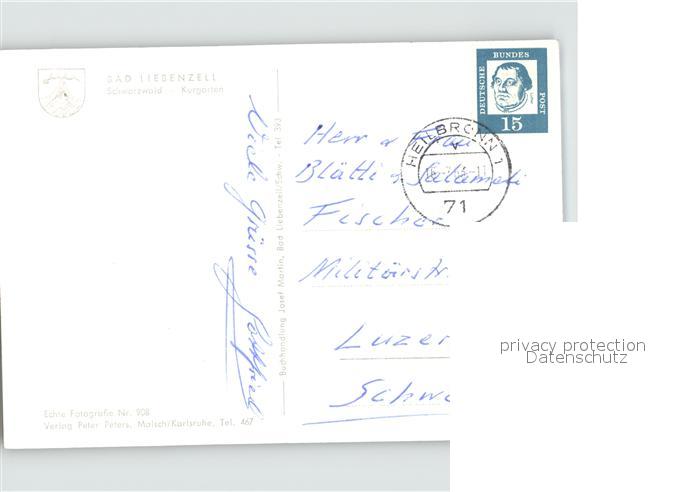 BAD LIEBENZELL
Schwarzwald - Kurgarten
Viele Grüsse Gottfried
Buchhandlung Josef Martin, Bad Liebenzell/Schw. - Tel. 393
DEUTSCHE BUNDES POST
15
HEILBRONN 1
71
Herr u Frau
Blätti - Salameti
Fischer
Militärstr.
Luzer
Schwe
Echte Fotografie Nr. 908
Verlag Peter Peters, Malsch/Karlsruhe, Tel. 467
privacy protection
Datenschutz